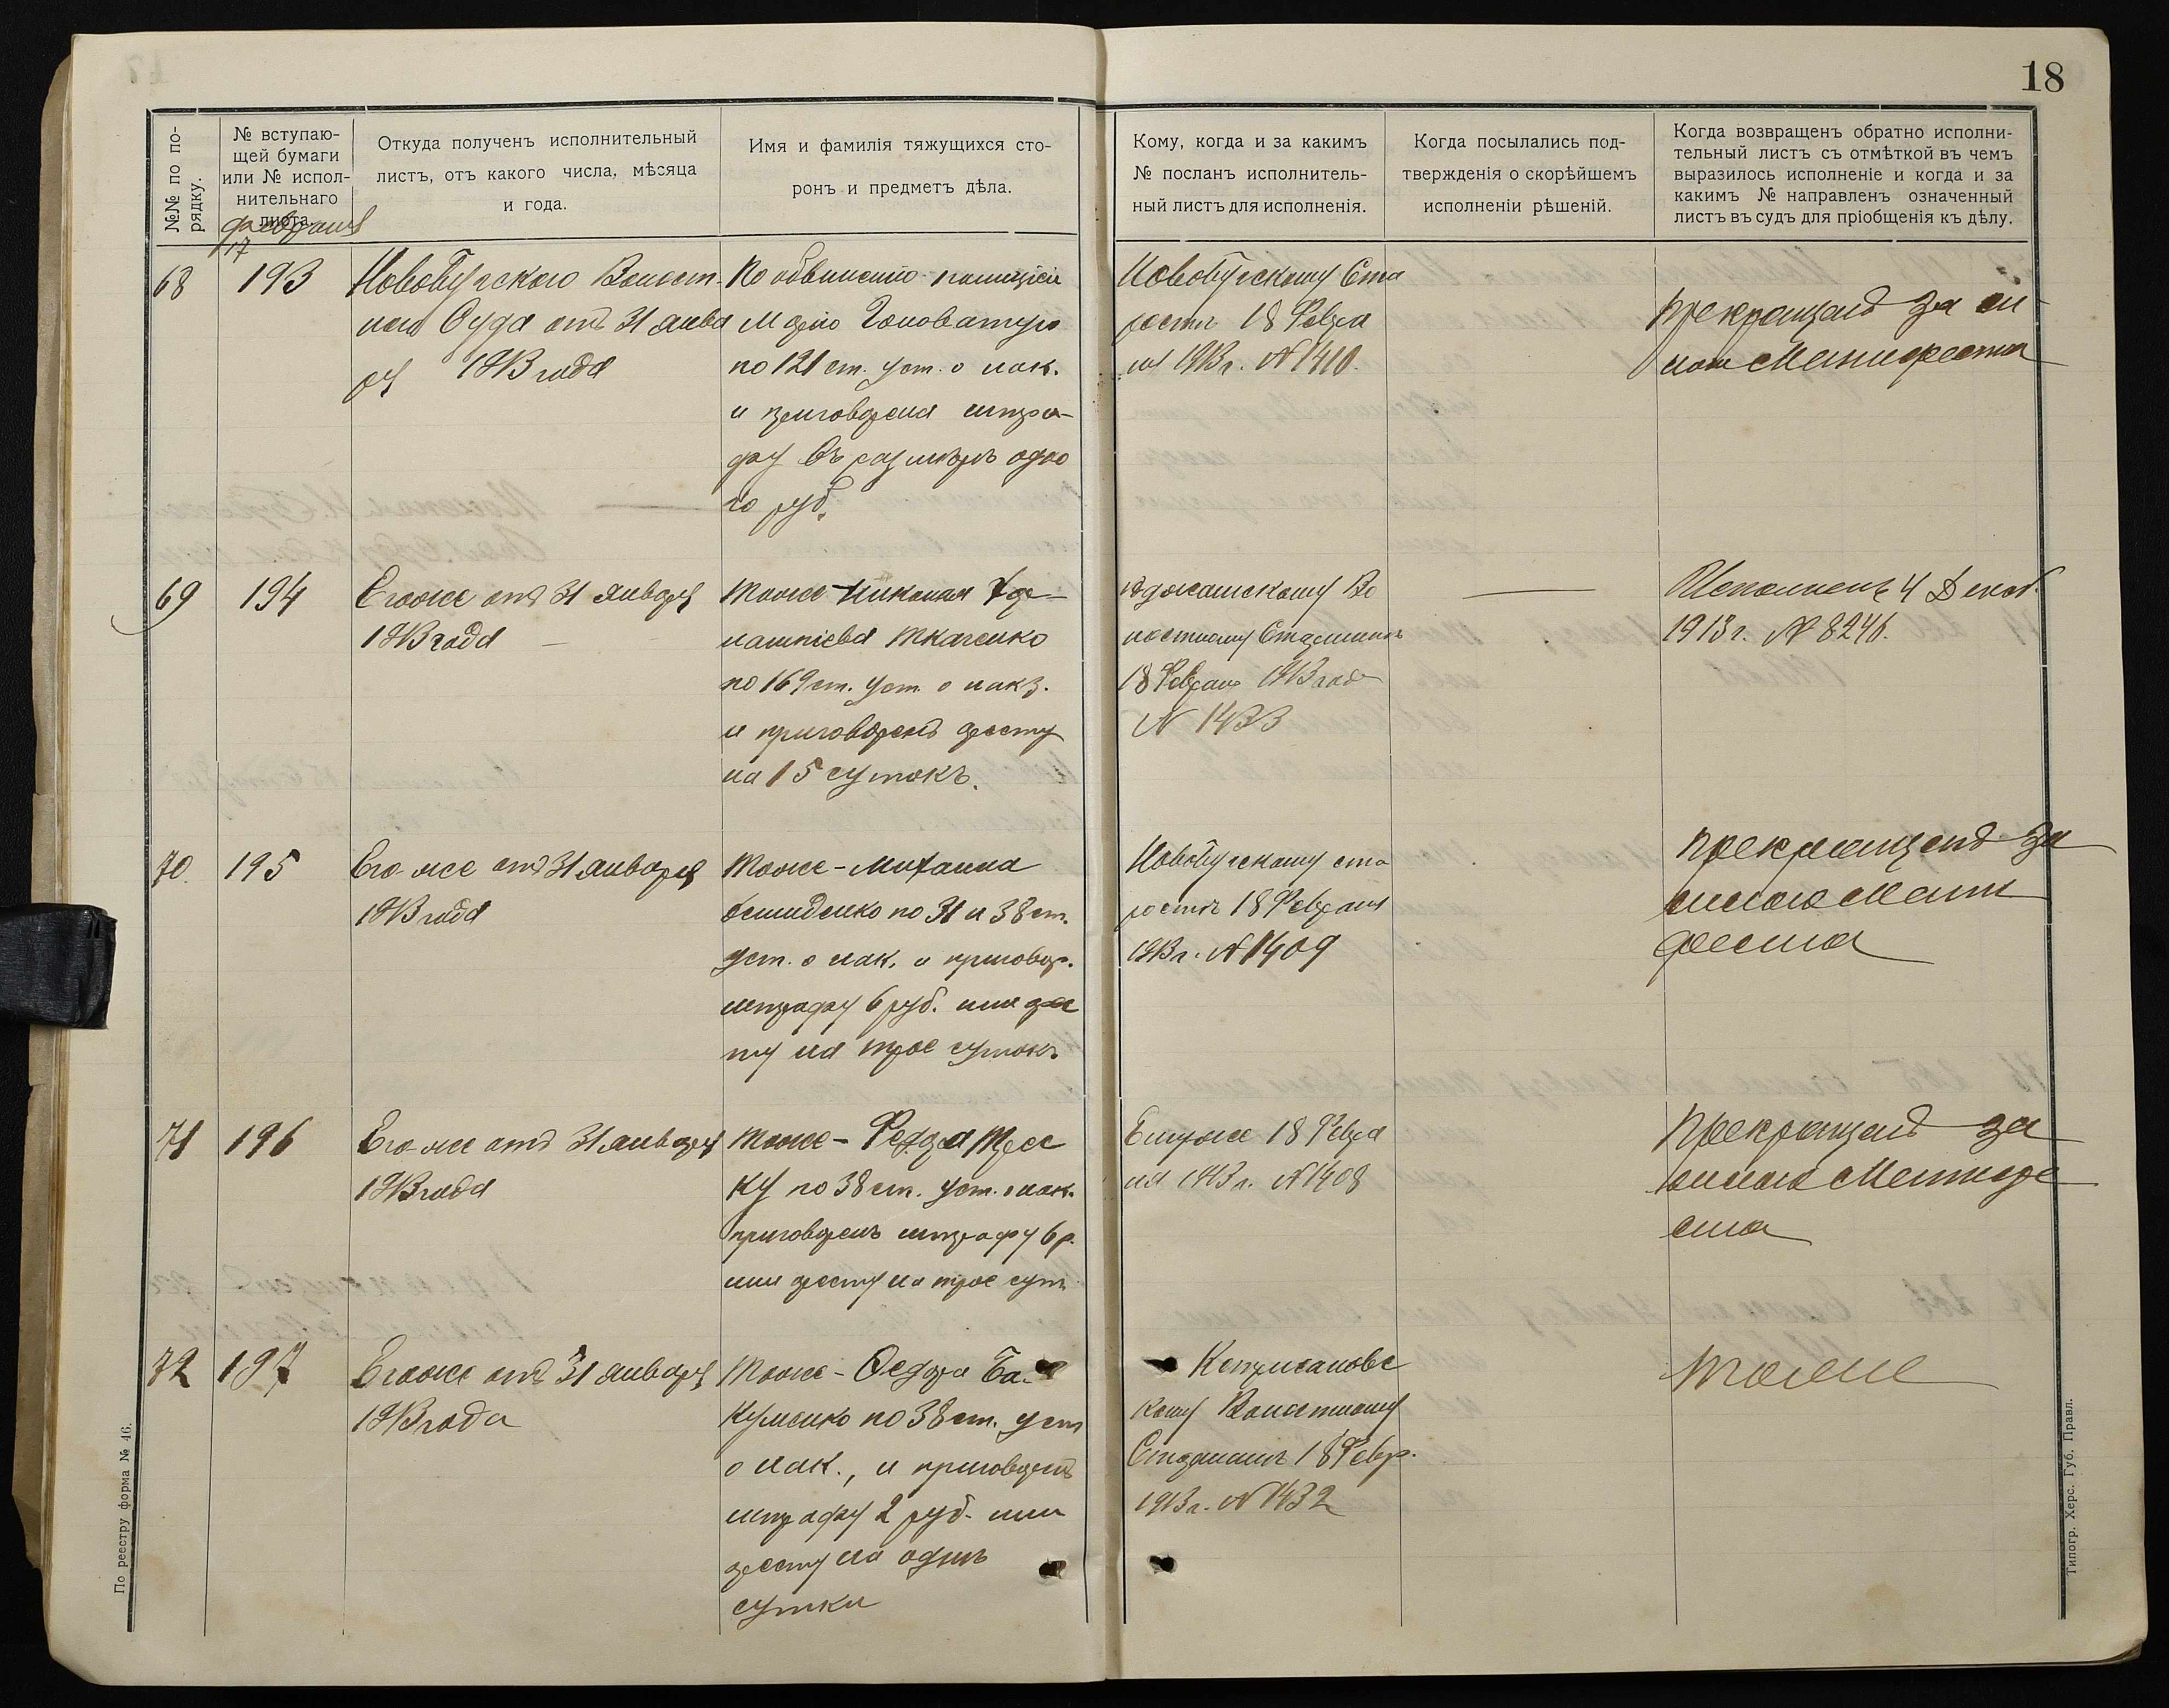 18
№№ по по-
рядку.
№ вступаю-
щей бумаги
или № испол-
нительнаго
листа.
Откуда полученъ исполнительный
листъ, отъ какого числа, мѣсяца
и года.
Имя и фамилія тяжущихся сто-
ронъ и предметъ дѣла.
Кому, когда и за какимъ
№ посланъ исполнитель-
ный листъ для исполненія.
Когда посылались под-
твержденія о скорѣйшемъ
исполненіи рѣшеній.
Когда возвращенъ обратно исполни-
тельный листъ съ отмѣткой въ чемъ
выразилось исполненіе и когда и за
какимъ № направленъ означенный
листъ въ судъ для пріобщенія къ дѣлу.
февраля
17
68
193
Новобугского Волост-
ного Суда отъ 31 янва
ря 1913 года
По обвинению полиціей
Марію Головатую
по 121 ст. уст. о нак.
и приговорена штра-
фу въ размѣрѣ одно
го руб.
Новобугскому Ста
ростѣ 18 Февра
ля 1913 г. № 1410.
Прекращенъ за си-
лою Манифеста
69
194
Егоже отъ 31 января
1913 года
Тоже - Николая
Ткаченко
по 169 ст. уст. о наказ.
и приговоренъ аресту
на 15 сутокъ.
Во
лостному Старшинѣ
18 Февраля 1913 года
№ 1433
Исполненъ 4 Декаб.
1913 г. № 8246.
70.
195
Его-же отъ 31 января
1913 года
Тоже - Михаила
по 31 и 38 ст.
уст. о нак. и приговор.
штрафу 6 руб. или арес
ту на трое сутокъ
Новобугскому ста
ростѣ 18 Февраля
1913 г. № 1409
Прекращенъ за
силою Мани
феста
71
196
Его-же отъ 31 января
1913 года
Тоже -
по 38 ст. уст. о нак.
приговоренъ штрафу 6 р.
или аресту на трое сут.
Ему же 18 Февра
ля 1913 г. № 1408
Прекращенъ за
силою Манифе
ста
72
197
Егоже отъ 31 января
1913 года
Тоже - Федора Ба-
куменко по 38 ст. уст
о нак., и приговоренъ
штрафу 2 руб. или
аресту на однѣ
сутки
Кеприсановс
кому Волостному
Старшинѣ 18 Февр.
1913 г. № 1432
Тоже
По реестру форма № 46.
Типогр. Херс. Губ. Правл.